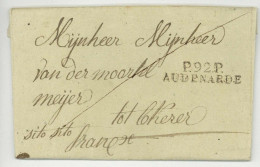 Mijnheer Mijnheer
van der moortele
P.92.P.
AUDENARDE
meijer
tot Cherer
sito sito
franco